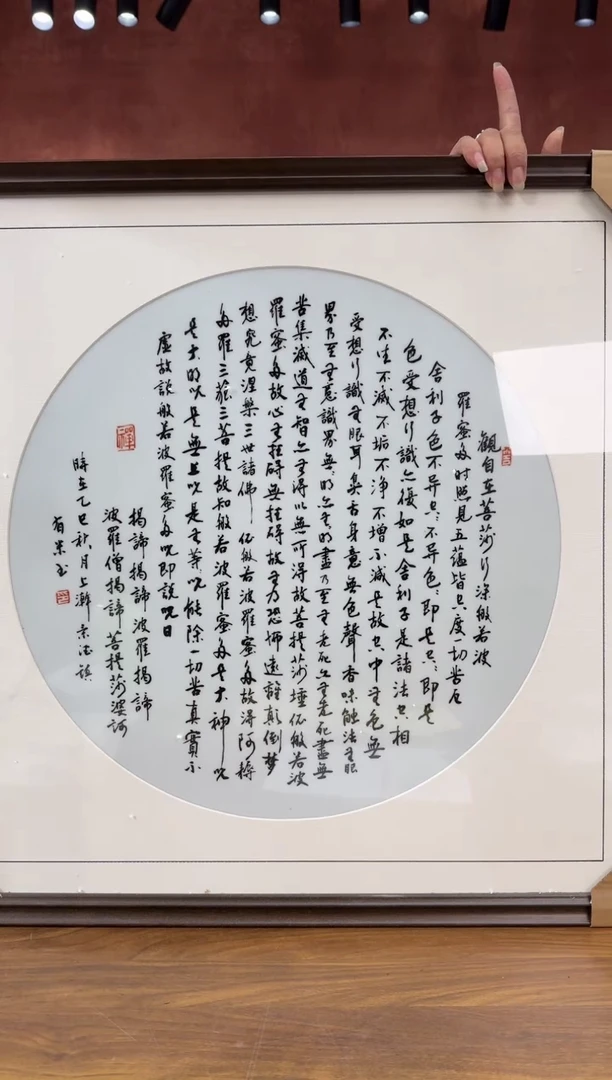 觀自在菩薩行深般若波
羅蜜多時照見五蘊皆空度一切苦厄
舍利子色不異空空不異色色即是空空即是
色受想行識亦復如是舍利子是諸法空相
不生不滅不垢不淨不增不減是故空中無色無
受想行識無眼耳鼻舌身意無色聲香味觸法無眼
界乃至無意識界無無明亦無無明盡乃至無老死亦無老死盡無
苦集滅道無智亦無得以無所得故菩提薩埵依般若波
羅蜜多故心無罣礙無罣礙故無有恐怖遠離顛倒夢
想究竟涅槃三世諸佛依般若波羅蜜多故得阿耨
多羅三藐三菩提故知般若波羅蜜多是大神咒
是大明咒是無上咒是無等等咒能除一切苦真實不
虛故說般若波羅蜜多咒即說咒曰
揭諦揭諦波羅揭諦
波羅僧揭諦菩提薩婆訶
禪
時在乙巳秋月上澣景德鎮